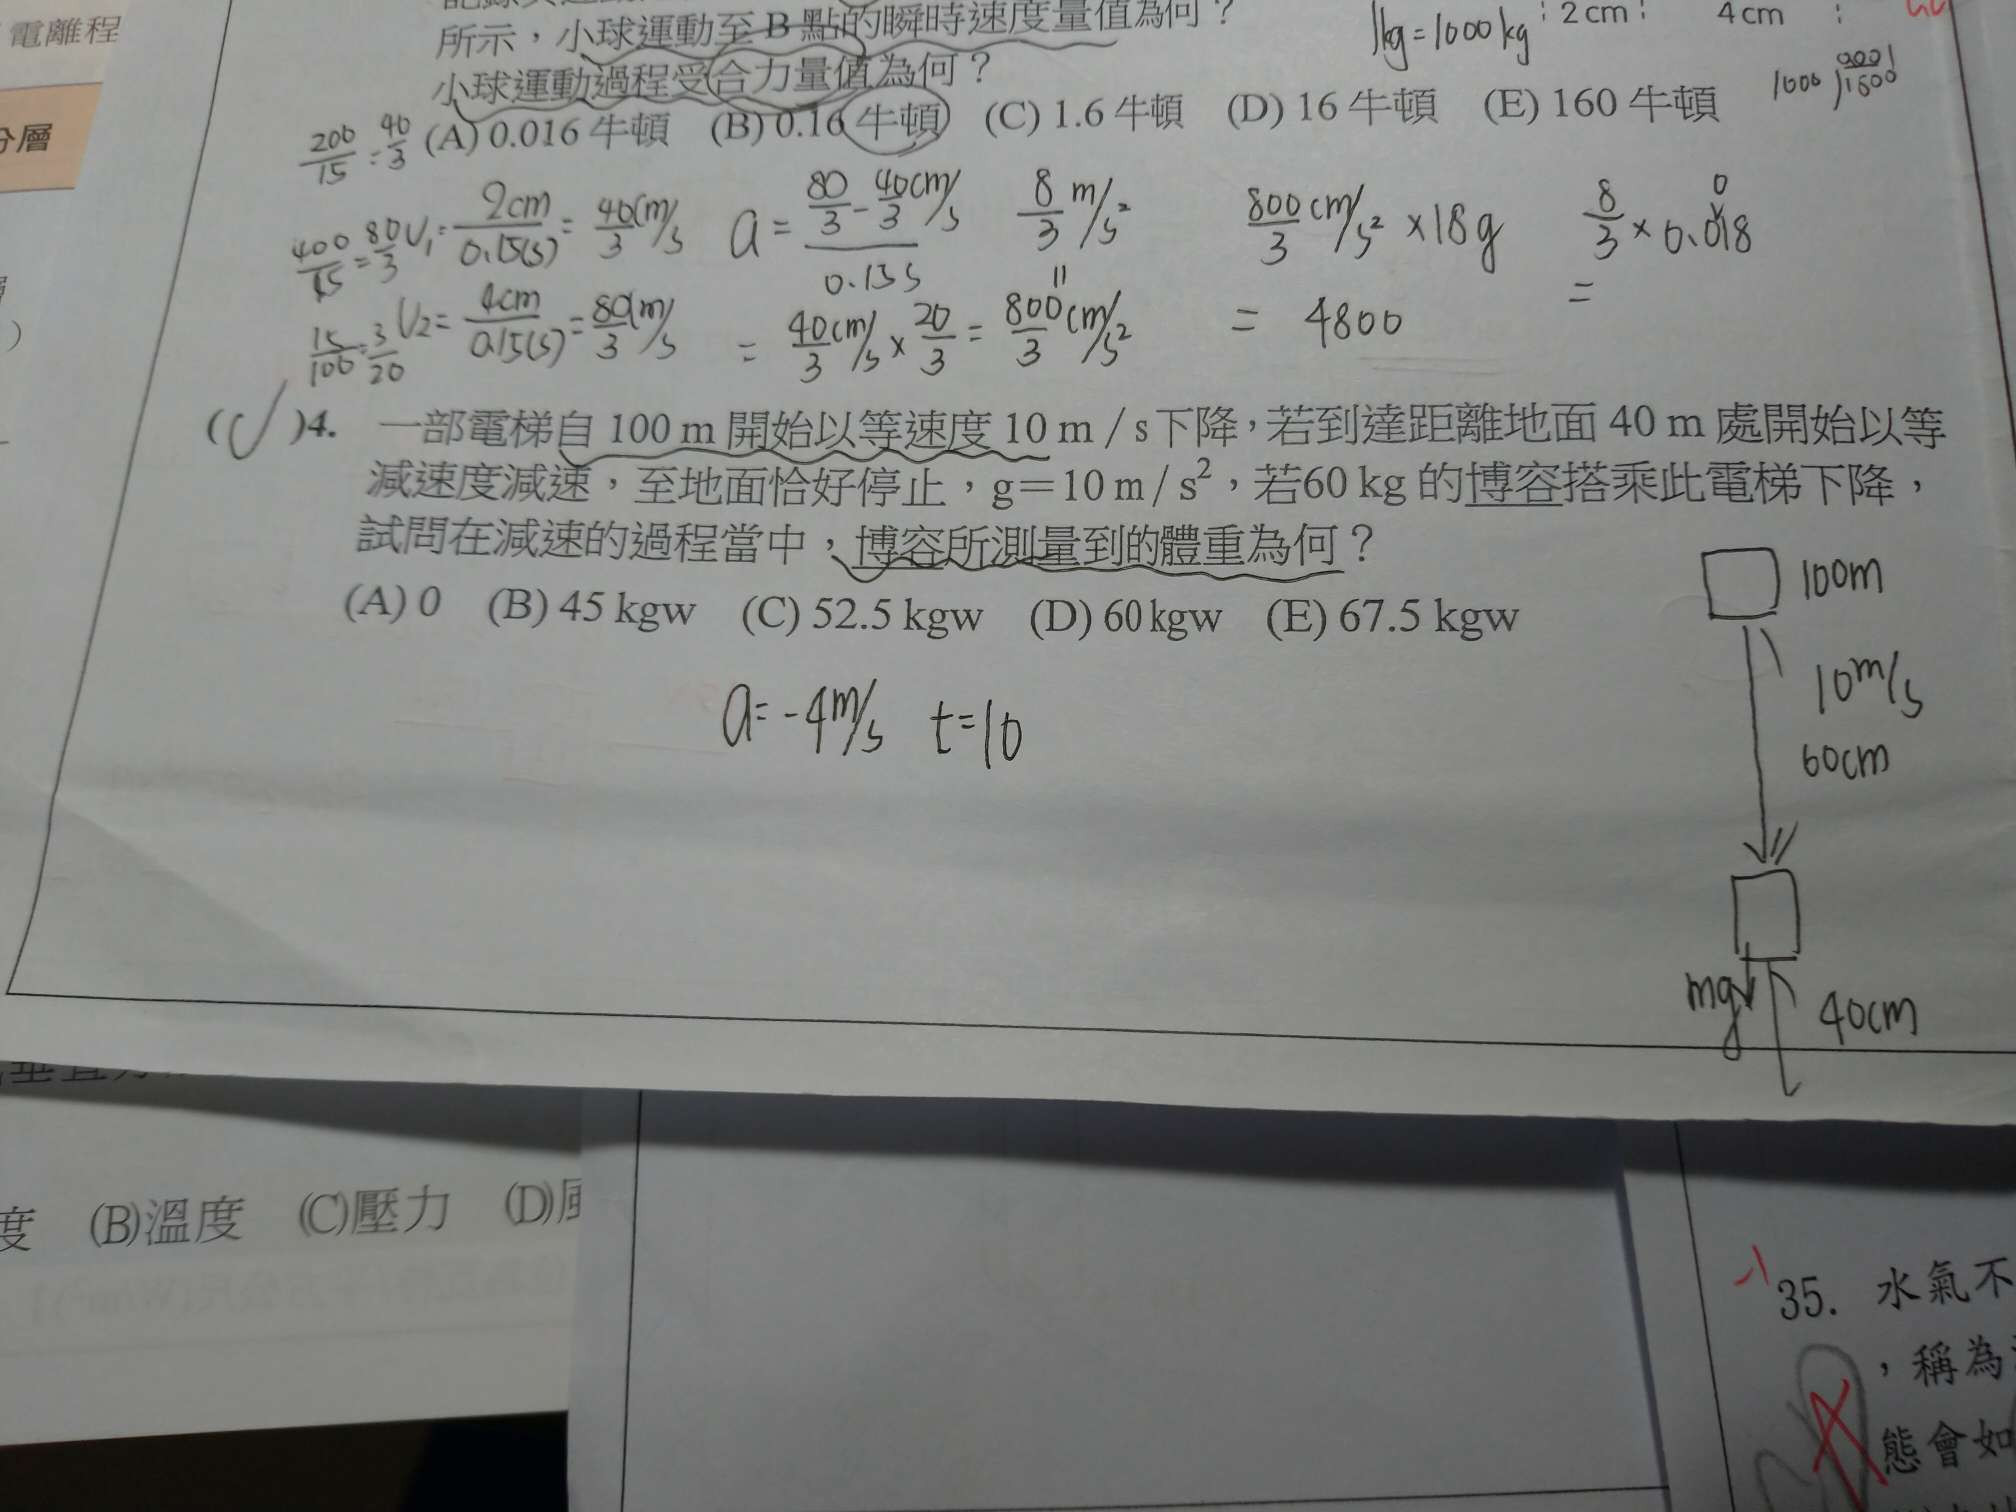 電離程
分層
所示，小球運動至B點的瞬時速度量值為何？
1kg=1000kg
2cm
4cm
小球運動過程受合力量值為何？
(A) 0.016 牛頓 (B) 0.16 牛頓 (C) 1.6 牛頓 (D) 16 牛頓 (E) 160 牛頓
200/15 = 40/3
400/15 = 80/3
15/100 = 3/20
V1 = 2cm/0.15(s) = 40/3 cm/s
V2 = 4cm/0.15(s) = 80/3 cm/s
a = (80/3 - 40/3 cm/s)/0.15s
= 40/3 cm/s × 20/3 = 800/3 cm/s²
8/3 m/s²
800/3 cm/s² × 18g
= 4800
8/3 × 0.018
=
( )4. 一部電梯自 100 m 開始以等速度 10 m / s 下降，若到達距離地面 40 m 處開始以等
減速度減速，至地面恰好停止，g＝10 m / s²，若60 kg 的博容搭乘此電梯下降，
試問在減速的過程當中，博容所測量到的體重為何？
(A) 0 (B) 45 kgw (C) 52.5 kgw (D) 60 kgw (E) 67.5 kgw
a=-4m/s t=10
100m
10m/s
60cm
mg
40cm
度 (B)溫度 (C)壓力 (D)
35. 水氣不
，稱為
態會如